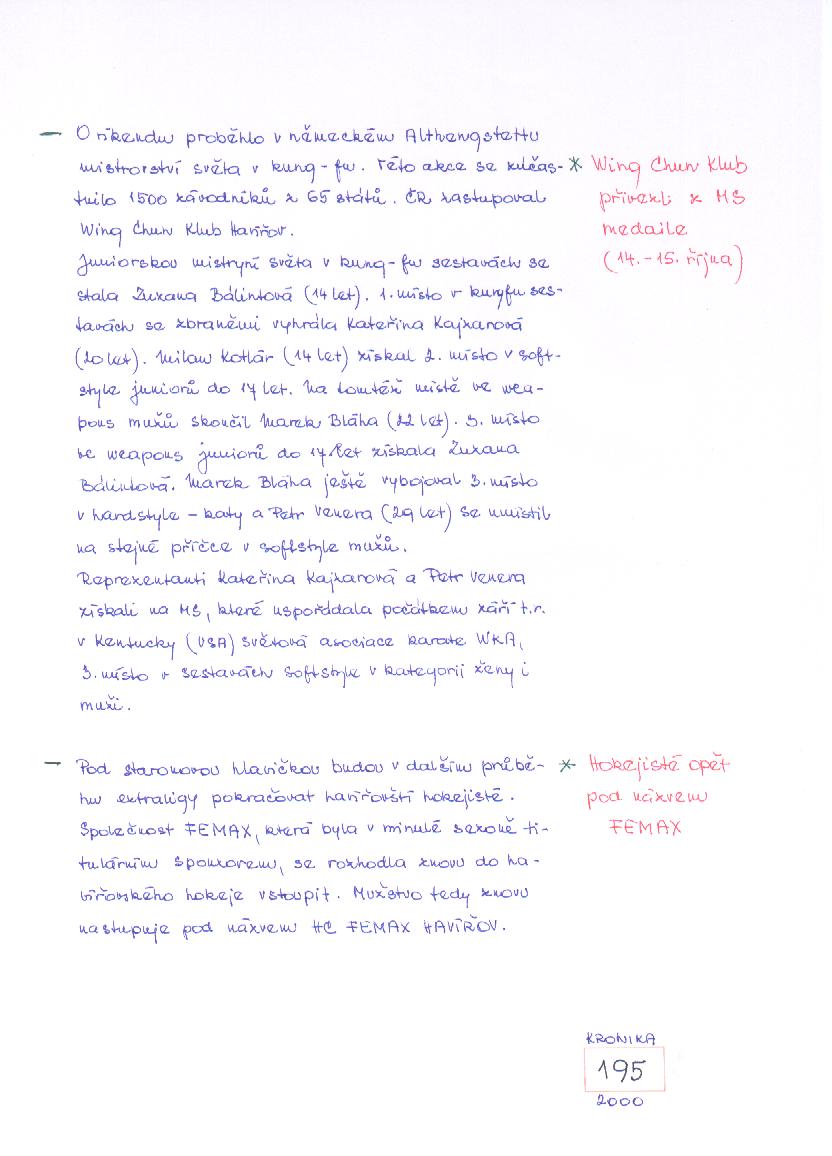 – O víkendu proběhlo v německém Althengstettu
mistrovství světa v kung-fu. Této akce se zúčas-
tnilo 1500 závodníků z 65 států. ČR zastupoval
Wing Chun Klub Havířov.
Juniorskou mistryní světa v kung-fu sestavách se
stala Zuzana Bálintová (14 let). 1. místo v kungfu ses-
tavách se zbraněmi vyhrála Kateřina Kajzarová
(20 let). Milan Kotlár (14 let) získal 2. místo v soft-
style juniorů do 17 let. Na tomtéž místě ve wea-
pons mužů skončil Marek Bláha (22 let). 3. místo
ve weapons juniorů do 17 let získala Zuzana
Bálintová. Marek Bláha ještě vybojoval 3. místo
v hardstyle – katy a Petr Venera (29 let) se umístil
na stejné příčce v softstyle mužů.
Reprezentanti Kateřina Kajzarová a Petr Venera
získali na MS, které uspořádala počátkem září t.r.
v Kentucky (USA) světová asociace karate WKA,
3. místo v sestavách softstyle v kategorii ženy i
muži.
* Wing Chun Klub
přivezl z MS
medaile
(14.-15. října)
– Pod staronovou hlavičkou budou v dalším průbě-
hu extraligy pokračovat havířovští hokejisté.
Společnost FEMAX, která byla v minulé sezoně ti-
tulárním sponzorem, se rozhodla znovu do ha-
vířovského hokeje vstoupit. Mužstvo tedy znovu
nastupuje pod názvem HC FEMAX HAVÍŘOV.
* Hokejisté opět
pod názvem
FEMAX
KRONIKA
195
2000